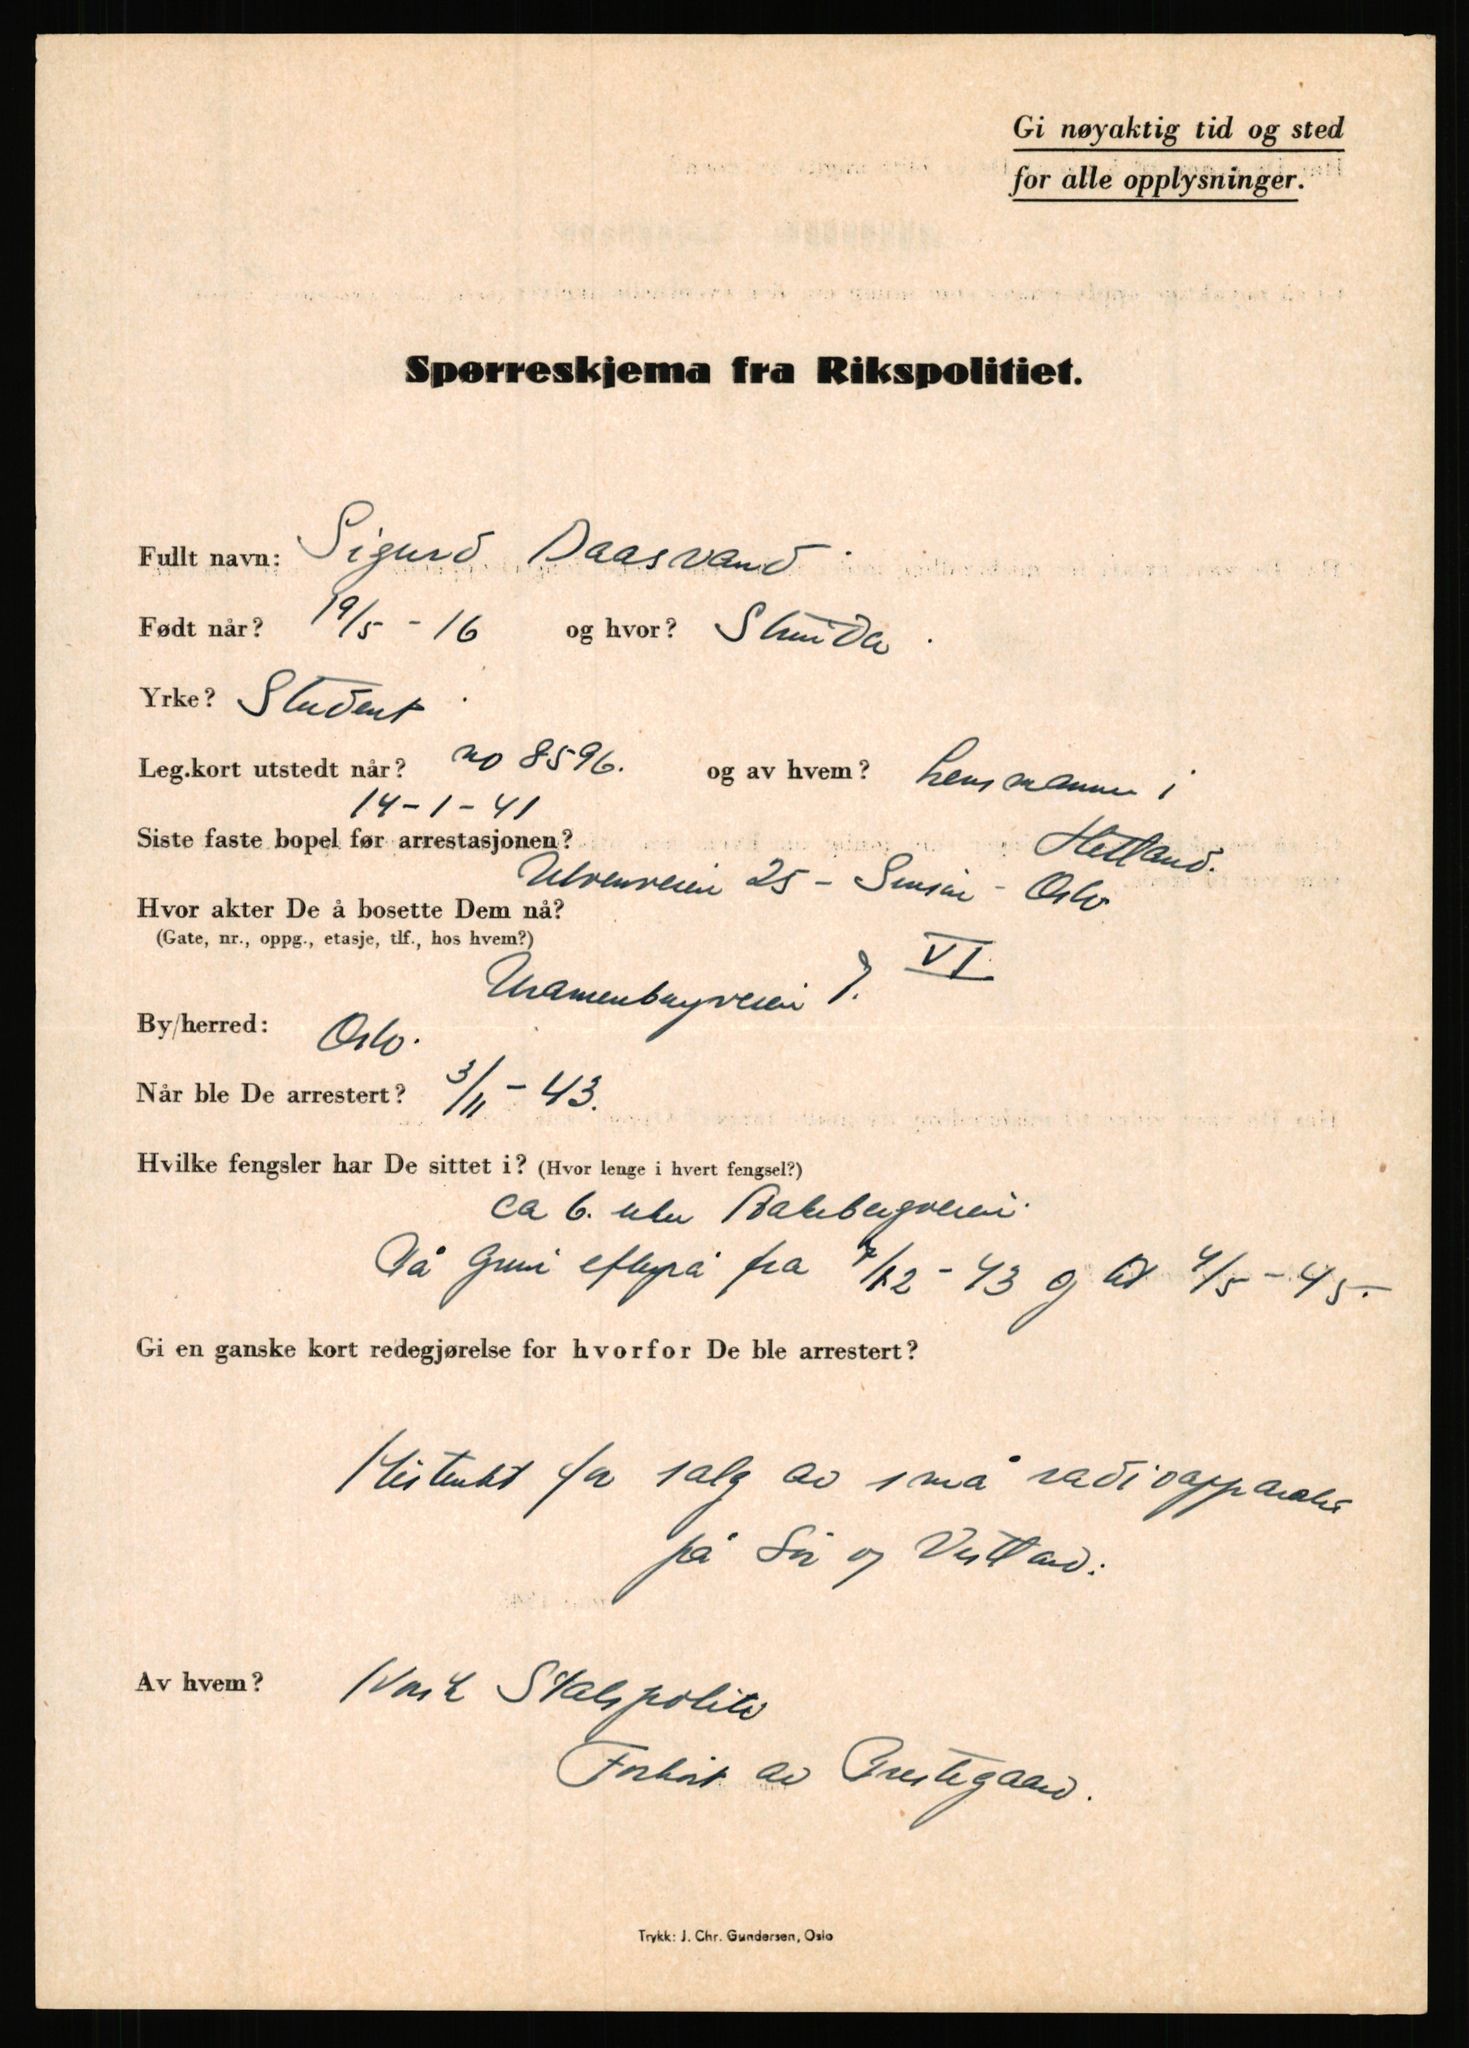 Gi nøyaktig tid og sted
for alle opplysninger.
Spørreskjema fra Rikspolitiet.
Fullt navn: Sigurd Daasvand.
Født når? 19/5 - 16 og hvor? .
Yrke? Student.
Leg.kort utstedt når? no 8596. og av hvem? Lensmannen i
14-1-41 Hetland.
Siste faste bopel før arrestasjonen?
Ulvenveien 25 - Sinsen - Oslo
Hvor akter De å bosette Dem nå?
(Gate, nr., oppg., etasje, tlf., hos hvem?)
Uranienburgveien 7. VI
By/herred: Oslo.
Når ble De arrestert? 3/11 - 43.
Hvilke fengsler har De sittet i? (Hvor lenge i hvert fengsel?)
ca 6. uker
På Grini efterpå fra /12 - 43 og til 4/5 - 45.
Gi en ganske kort redegjørelse for hvorfor De ble arrestert?
Mistenkt for salg av små radioapparater
på Sør og Vestland.
Av hvem? Norsk Statspoliti
Forhørt av Prestegaard.
Trykk: J. Chr. Gundersen, Oslo